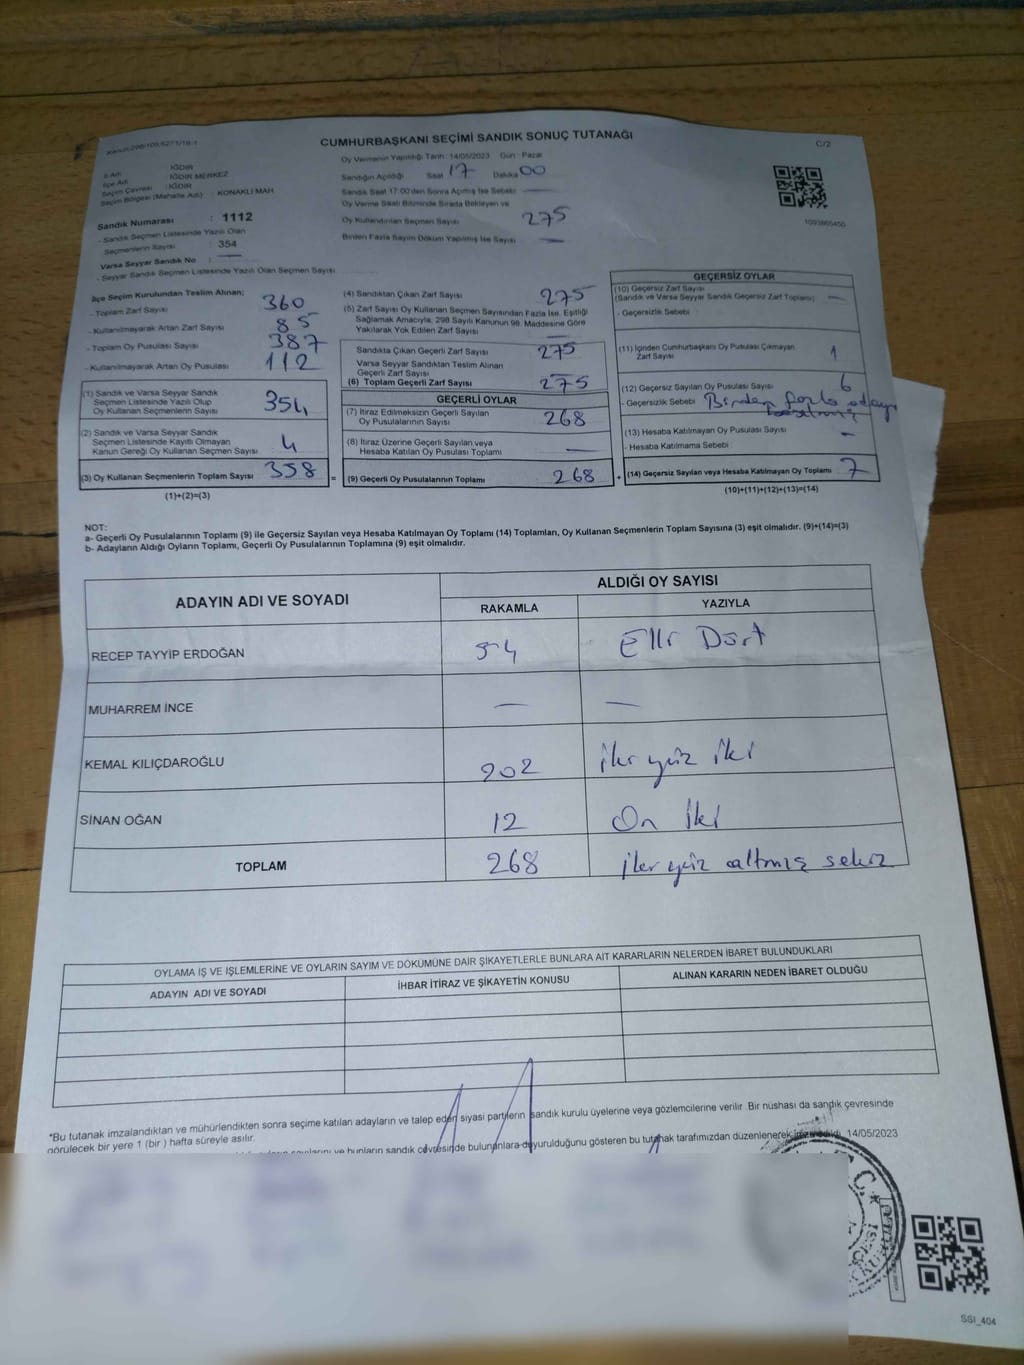 CUMHURBAŞKANI SEÇİMİ SANDIK SONUÇ TUTANAĞI
C/2
İl Adı : IĞDIR
İlçe Adı : IĞDIR MERKEZ
Seçim Çevresi : IĞDIR
Seçim Bölgesi (Mahalle Adı) : KONAKLI MAH.
Sandık Numarası : 1112
- Sandık Seçmen Listesinde Yazılı Olan
Seçmenlerin Sayısı : 354
Varsa Seyyar Sandık No : —
- Seyyar Sandık Seçmen Listesinde Yazılı Olan Seçmen Sayısı
Oy Vermenin Yapıldığı Tarih : 14/05/2023 Gün : Pazar
Sandığın Açıldığı Saat 17 Dakika 00
Sandık Saat 17:00'den Sonra Açılmış İse Sebebi —
Oy Verme Saati Bitiminde Sırada Bekleyen ve
Oy Kullandırılan Seçmen Sayısı 275
Birden Fazla Sayım Döküm Yapılmış İse Sayısı —
1093865450
İlçe Seçim Kurulundan Teslim Alınan;
- Toplam Zarf Sayısı 360
- Kullanılmayarak Artan Zarf Sayısı 85
- Toplam Oy Pusulası Sayısı 387
- Kullanılmayarak Artan Oy Pusulası 112
(1) Sandık ve Varsa Seyyar Sandık
Seçmen Listesinde Yazılı Olup
Oy Kullanan Seçmenlerin Sayısı 354
(2) Sandık ve Varsa Seyyar Sandık
Seçmen Listesinde Kayıtlı Olmayan
Kanun Gereği Oy Kullanan Seçmen Sayısı 4
(3) Oy Kullanan Seçmenlerin Toplam Sayısı 358 =
(1)+(2)=(3)
(4) Sandıktan Çıkan Zarf Sayısı 275
(5) Zarf Sayısı Oy Kullanan Seçmen Sayısından Fazla İse, Eşitliği
Sağlamak Amacıyla, 298 Sayılı Kanunun 98. Maddesine Göre
Yakılarak Yok Edilen Zarf Sayısı —
Sandıkta Çıkan Geçerli Zarf Sayısı 275
Varsa Seyyar Sandıktan Teslim Alınan
Geçerli Zarf Sayısı
(6) Toplam Geçerli Zarf Sayısı 275
GEÇERLİ OYLAR
(7) İtiraz Edilmeksizin Geçerli Sayılan
Oy Pusulalarının Sayısı 268
(8) İtiraz Üzerine Geçerli Sayılan veya
Hesaba Katılan Oy Pusulası Toplamı —
(9) Geçerli Oy Pusulalarının Toplamı 268 +
GEÇERSİZ OYLAR
(10) Geçersiz Zarf Sayısı
(Sandık ve Varsa Seyyar Sandık Geçersiz Zarf Toplamı) —
- Geçersizlik Sebebi
(11) İçinden Cumhurbaşkanı Oy Pusulası Çıkmayan
Zarf Sayısı 1
(12) Geçersiz Sayılan Oy Pusulası Sayısı 6
- Geçersizlik Sebebi Birden fazla adaya
(13) Hesaba Katılmayan Oy Pusulası Sayısı —
- Hesaba Katılmama Sebebi
(14) Geçersiz Sayılan veya Hesaba Katılmayan Oy Toplamı 7
(10)+(11)+(12)+(13)=(14)
NOT:
a- Geçerli Oy Pusulalarının Toplamı (9) ile Geçersiz Sayılan veya Hesaba Katılmayan Oy Toplamı (14) Toplamları, Oy Kullanan Seçmenlerin Toplam Sayısına (3) eşit olmalıdır. (9)+(14)=(3)
b- Adayların Aldığı Oyların Toplamı, Geçerli Oy Pusulalarının Toplamına (9) eşit olmalıdır.
ADAYIN ADI VE SOYADI
ALDIĞI OY SAYISI
RAKAMLA YAZIYLA
RECEP TAYYİP ERDOĞAN 54 Elli Dört
MUHARREM İNCE — —
KEMAL KILIÇDAROĞLU 202 iki yüz iki
SİNAN OĞAN 12 On iki
TOPLAM 268 iki yüz altmış sekiz
OYLAMA İŞ VE İŞLEMLERİNE VE OYLARIN SAYIM VE DÖKÜMÜNE DAİR ŞİKAYETLERLE BUNLARA AİT KARARLARIN NELERDEN İBARET BULUNDUKLARI
ADAYIN ADI VE SOYADI İHBAR İTİRAZ VE ŞİKAYETİN KONUSU ALINAN KARARIN NEDEN İBARET OLDUĞU
*Bu tutanak imzalandıktan ve mühürlendikten sonra seçime katılan adayların ve talep eden siyasi partilerin sandık kurulu üyelerine veya gözlemcilerine verilir. Bir nüshası da sandık çevresinde
görülecek bir yere 1 (bir ) hafta süreyle asılır.
ve bunların sandık çevresinde bulunanlara duyurulduğunu gösteren bu tutanak tarafımızdan düzenlenerek imza edildi. 14/05/2023
SSI_404